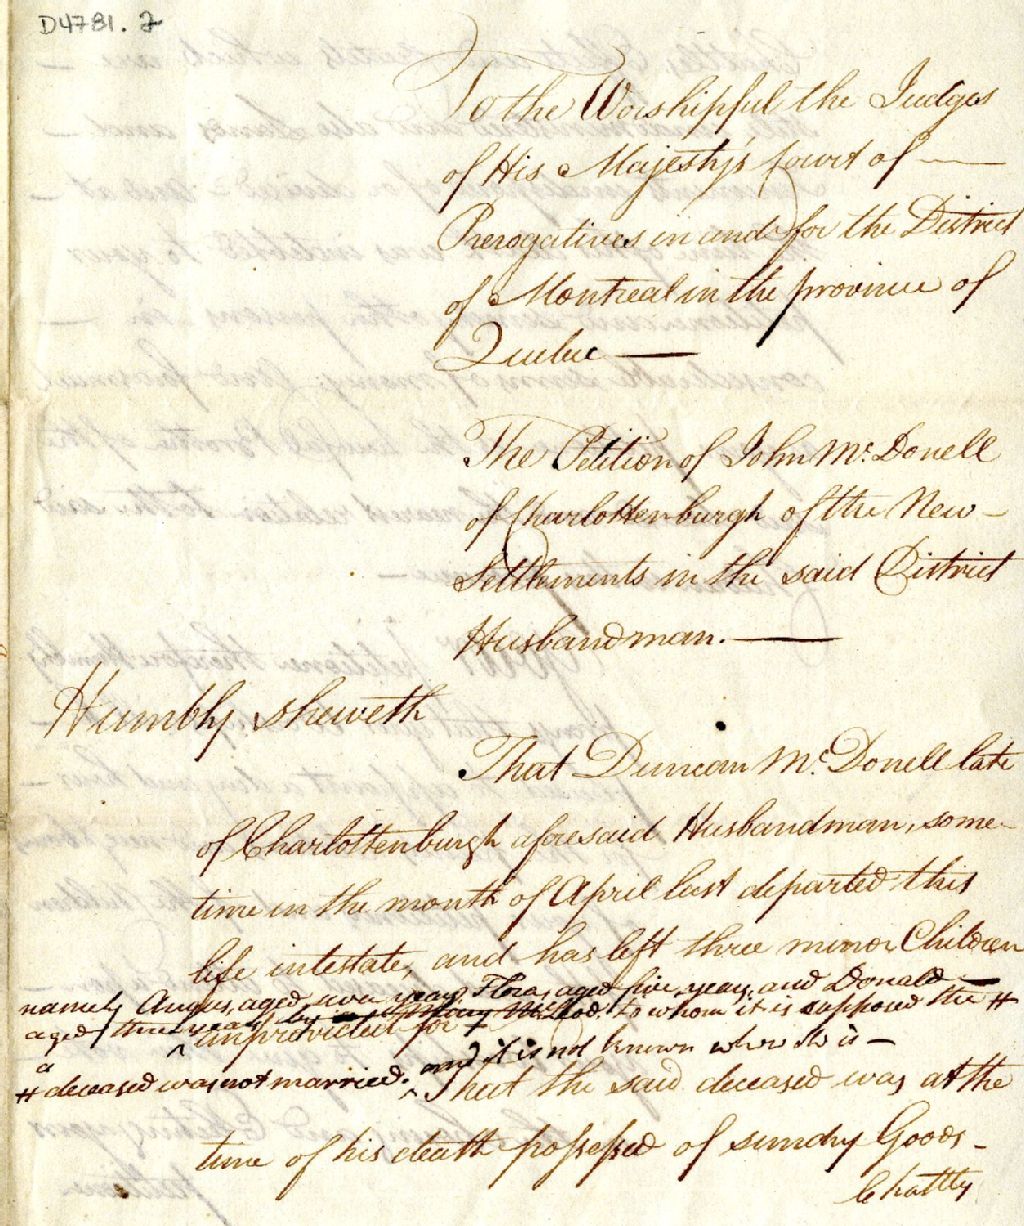 D4781. 2
To the Worshipful the Judges
of His Majesty's Court of —
Prerogatives in and for the District
of Montreal in the province of
Quebec —
The Petition of John Mc Donell
of Charlottenburgh of the New –
Settlements in the said District
Husbandman. —
Humbly sheweth
That Duncan Mc Donell late
of Charlottenburgh aforesaid Husbandman, some
time in the month of April last departed this
life intestate, and has left three minor Children
namely Angus, aged years, Flora, aged five years, and Donald —
aged three years, by a to whom it is supposed the #
unprovided for +
# deceased was not married. and it is not known where she is –
That the said deceased was at the
time of his death possessed of sundry Goods –
Chattles